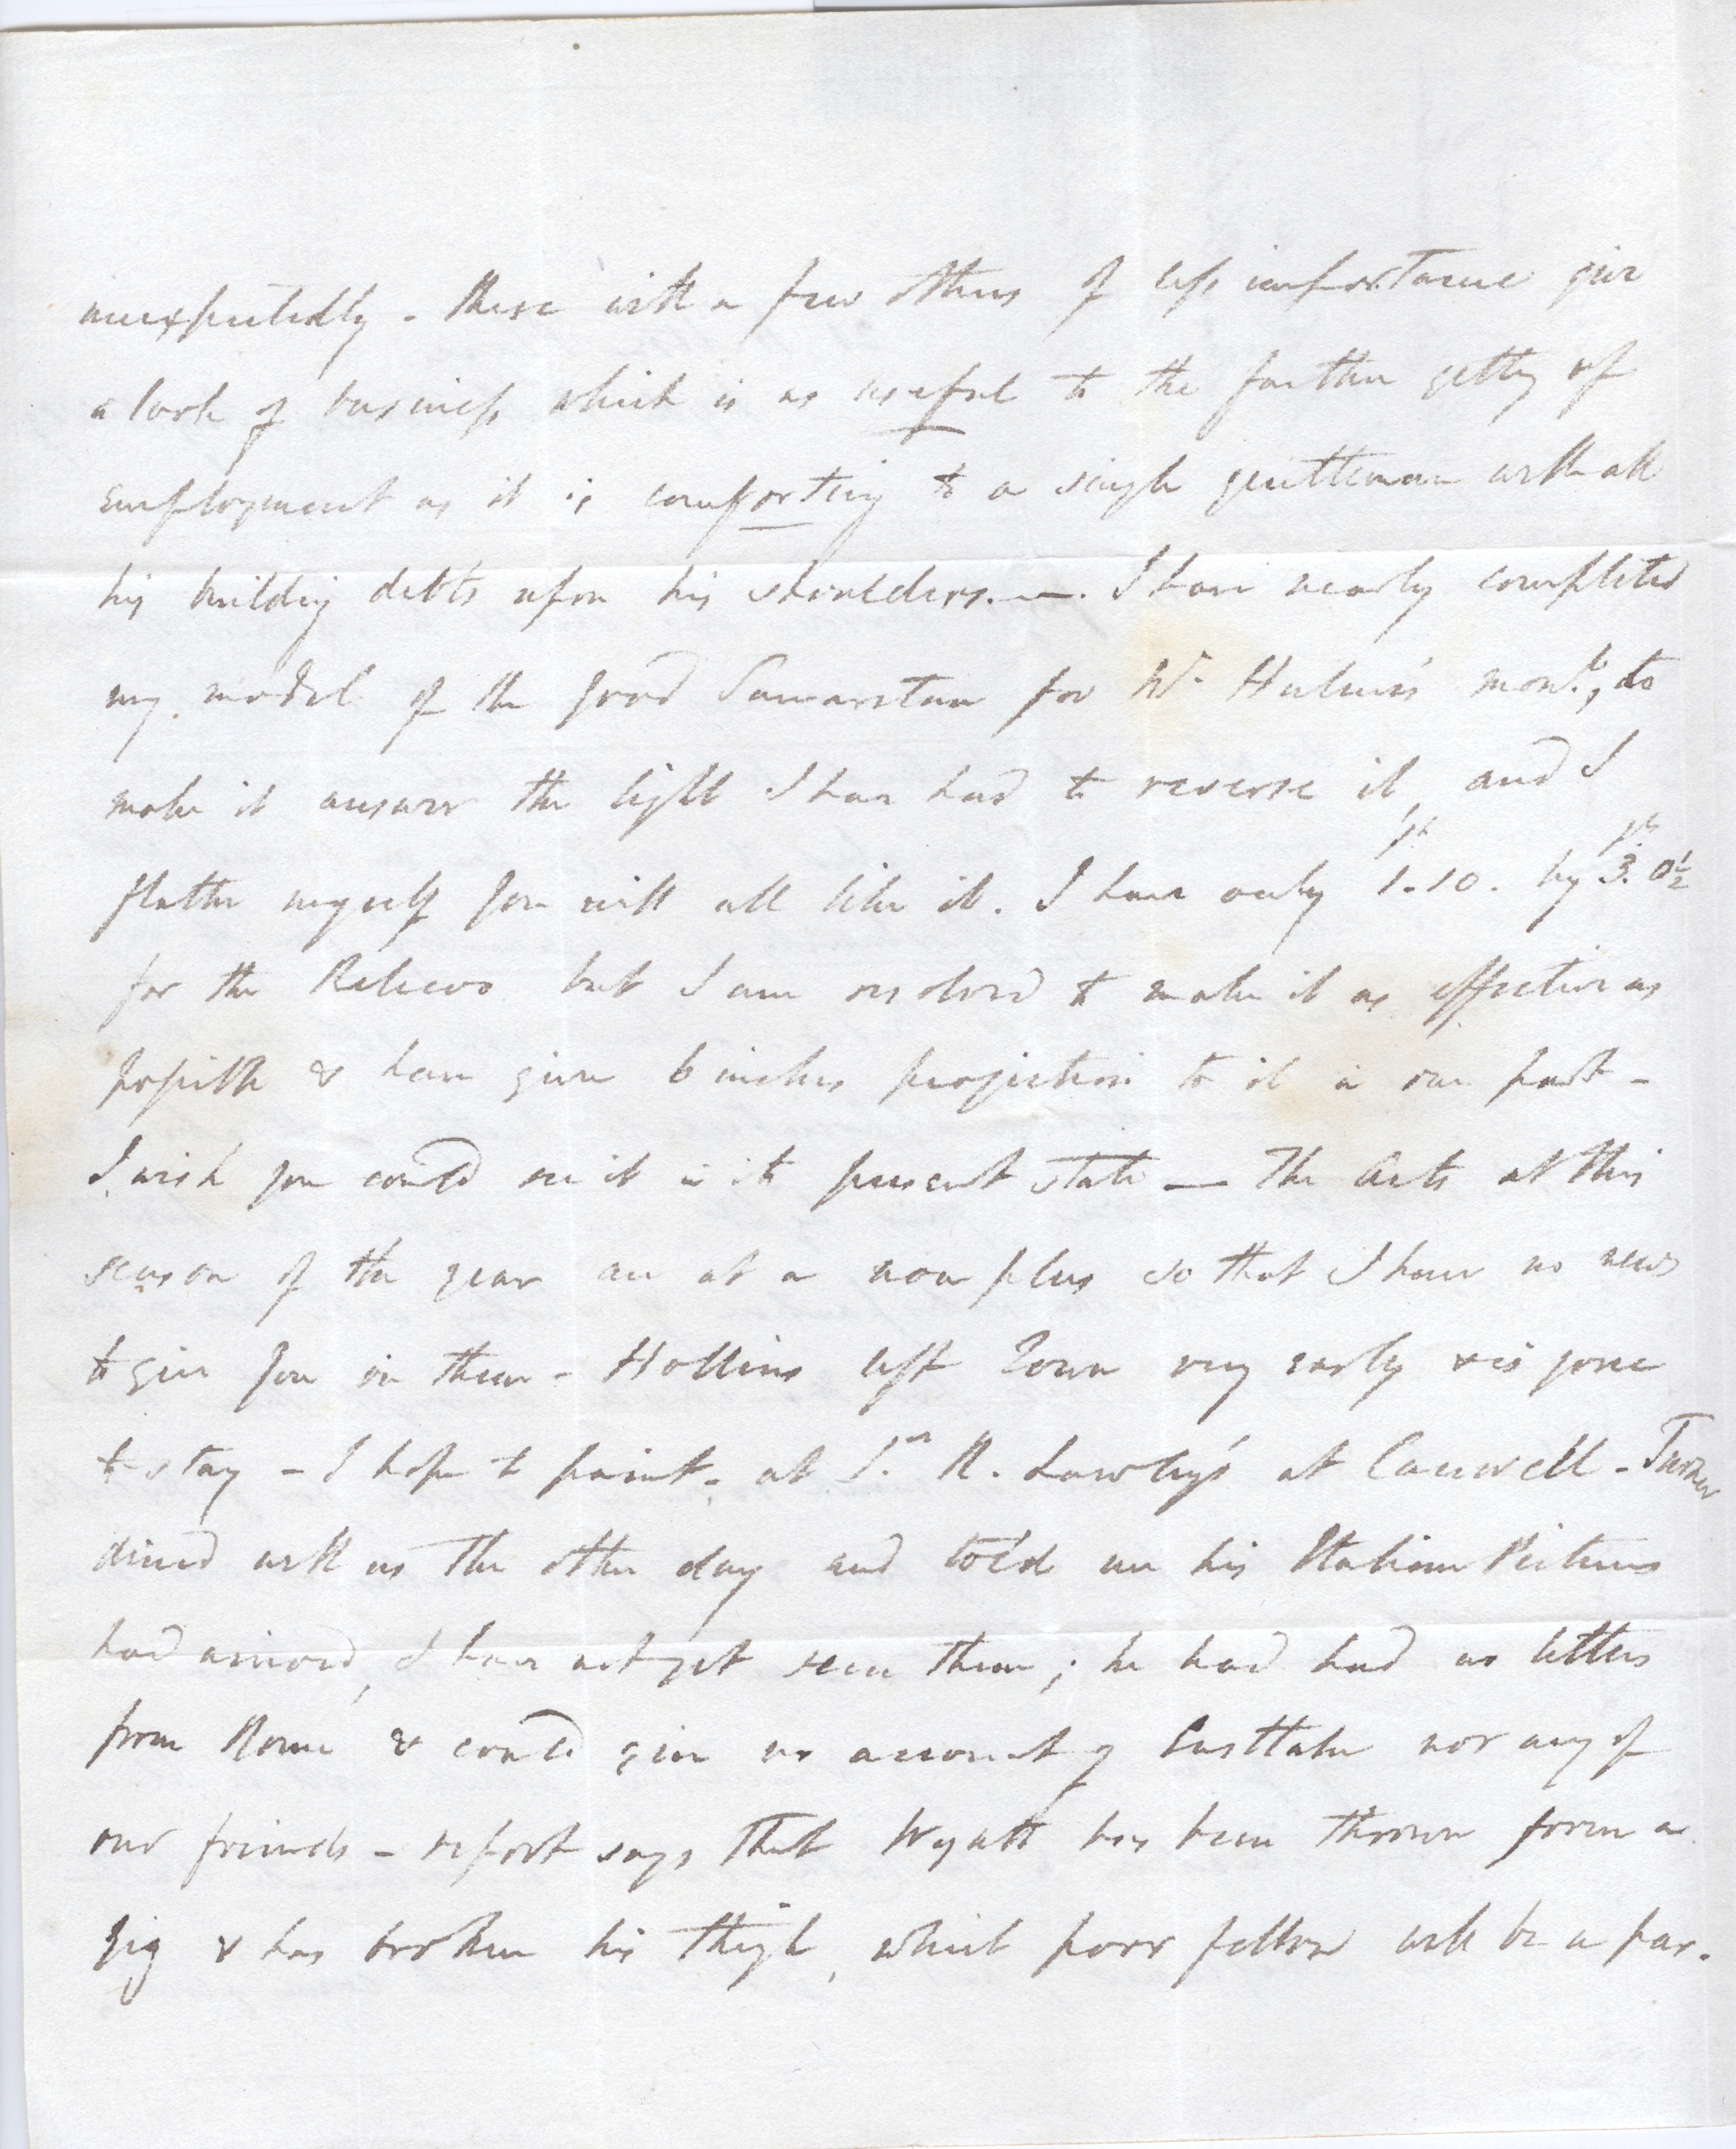 unexpectedly - these with a few others of less importance give
a look of business which is as useful to the farther getting of
employment as it is comforting to a single gentleman with all
his building debts upon his shoulders. —. I have nearly completed
my model of the good Samaritan for Wm Hulme's mont., to
make it answer the light I have had to reverse it, and I
flatter myself you will all like it. I have only 1.10. by 3. 0½
for the Relievo but I am resolved to make it as effective as
possible & have given 6 inches projection to it in one part -
I wish you could see it in its present state — The Arts at this
season of the year are at a non plus so that I have no news
to give you in them - Hollins left Town very early & is gone
to stay - I hope to paint - at Sr. R. Lawley's at Canwell - Turner
dined with us the other day and told me his Italian Pictures
had arrived, I have not yet seen them; he had had no letters
from Rome & could give no account of Eastlake nor any of
our friends - report says that Wyatt has been thrown from a
gig & has broken his thigh, which poor fellow will be a par-